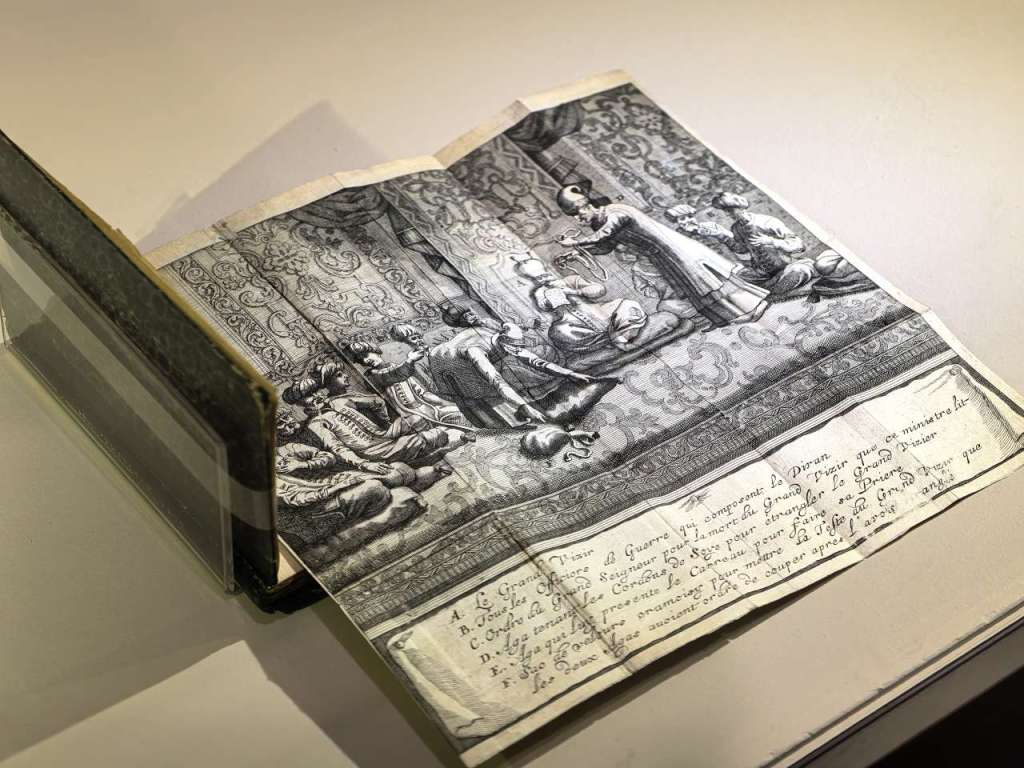 A. Le Grand Vizir
B. Tous les Officiers de Guerre qui composent le Divan
C. Ordre du Grand Seigneur pour la mort du Grand Vizir que ce ministre lit
D. Aga tenant les Cordons de Soye pour étrangler le Grand Vizier
E. Aga qui lui presente le Carreau pour faire sa Priere
F. Sac de Cuire cramoisy pour mettre la Teste du Grand Vizir que
les deux Agas avoient ordre de couper apres l'avoir